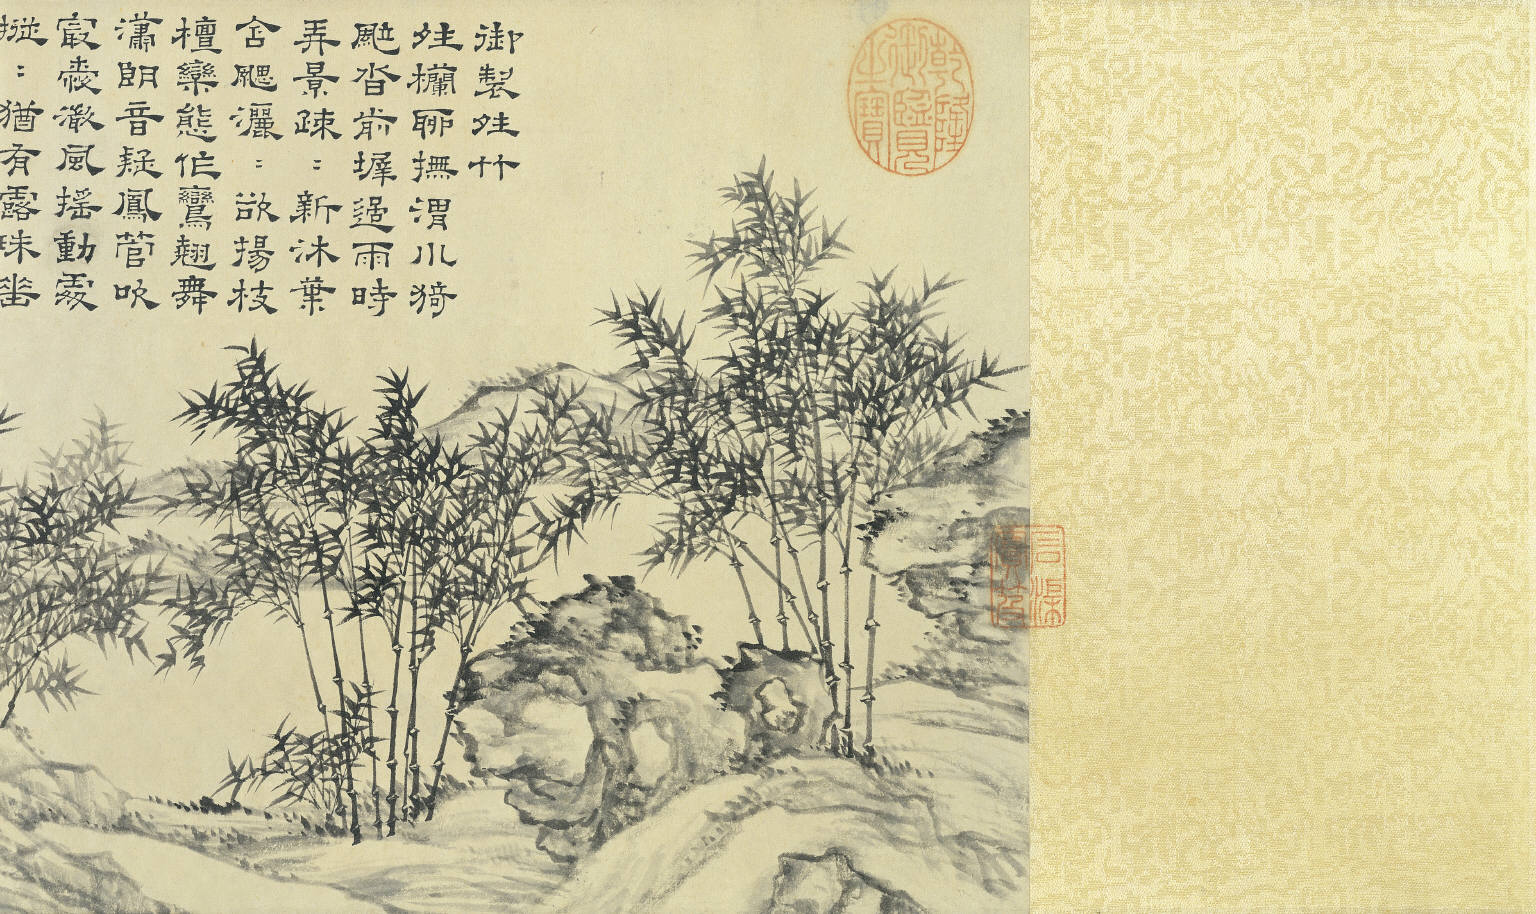 御製𤯓竹
𤯓欄聊撫渭川猗
颭沓前墀過雨時
弄景疎：新沐葉
含颸灑：欲揚枝
檀欒態作鸞翹舞
瀟朗音疑鳳管吹
㝡愛澂風搖動處
摐：猶有露珠垂
乾隆御覽之寶